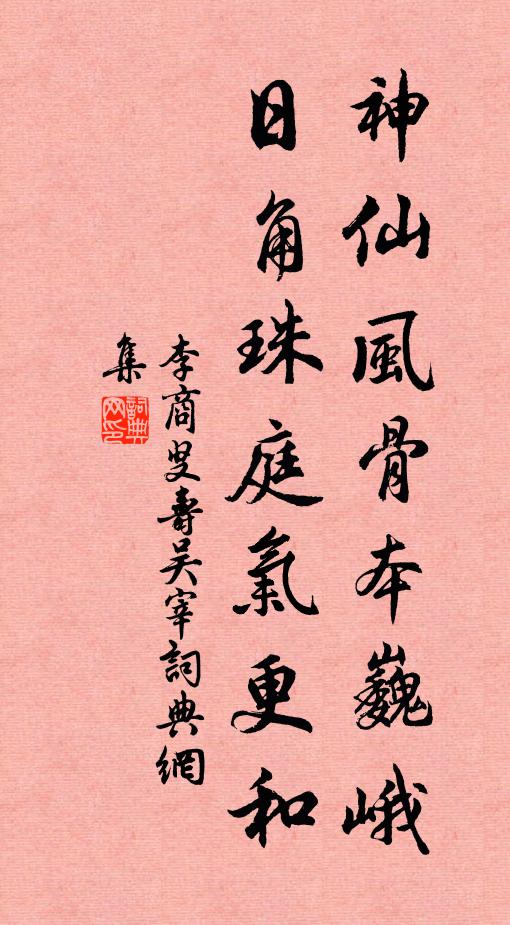 神仙風骨本巍峨
日角珠庭氣更和
李商叟壽吳宰詞典網
集
詞典
网印